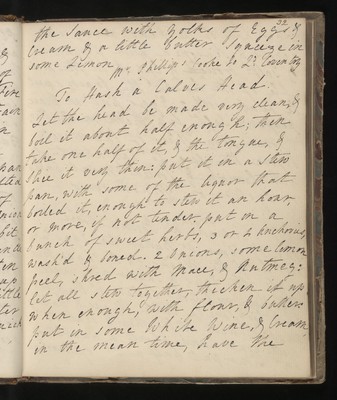 32
the Sauce with yolks of Eggs &
Cream & a little butter Squeeze in
some Limon
Mr Phillips Cooke to Ld
To Hash a Calves Head.
Let the head be made very clean, &
boil it about half enough; then
take one half of it, & the tongue, &
slice it very thin: put it in a stew
pan, with some of the liquor that
boiled it, enough to stew it an hour,
or more, if not tender, put in a
bunch of sweet herbs, 3 or 4 Anchovies,
wash'd & boned. 2 Onions, some lemon
peel, shred with Mace, & Nutmeg:
let all stew together, thicken it up
when enough, with flour, & butter
put in some White Wine, & Cream,
in the mean time, have the